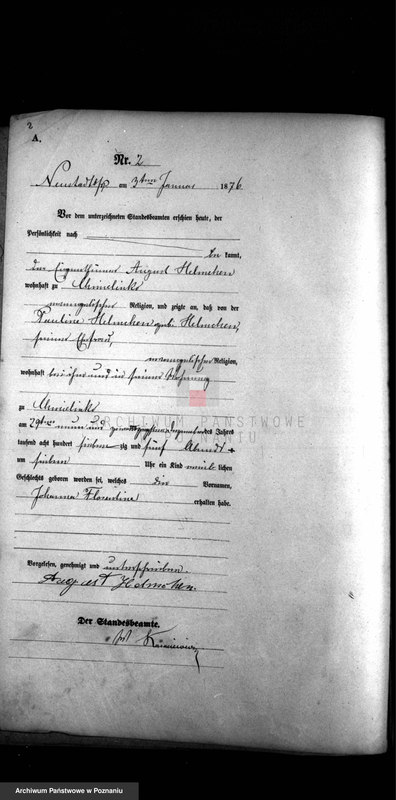 2
A.
Nr. 2
Neustadt b/P am 3ten Januar 1876
Vor dem unterzeichneten Standesbeamten erschien heute, der
Persönlichkeit nach
be kannt,
der Eigenthümer August Helmchen
wohnhaft zu Chmielinke
evangelischer Religion, und zeigte an, daß von der
Pauline Helmchen geb. Helmchen,
seiner Ehefrau,
evangelischer Religion,
wohnhaft bei ihm und in seiner Wohnung
zu Chmielinke
am 29ten neun und zwanzigsten Dezember des Jahres
tausend acht hundert sieben zig und fünf Abends
um sieben Uhr ein Kind weib lichen
Geschlechts geboren worden sei, welches die Vornamen,
Johanna Florentine
erhalten habe.
Vorgelesen, genehmigt und unterschrieben.
August Helmchen.
Der Standesbeamte.
ARCHIWUM PAŃSTWOWE
W POZNANIU
Archiwum Państwowe w Poznaniu